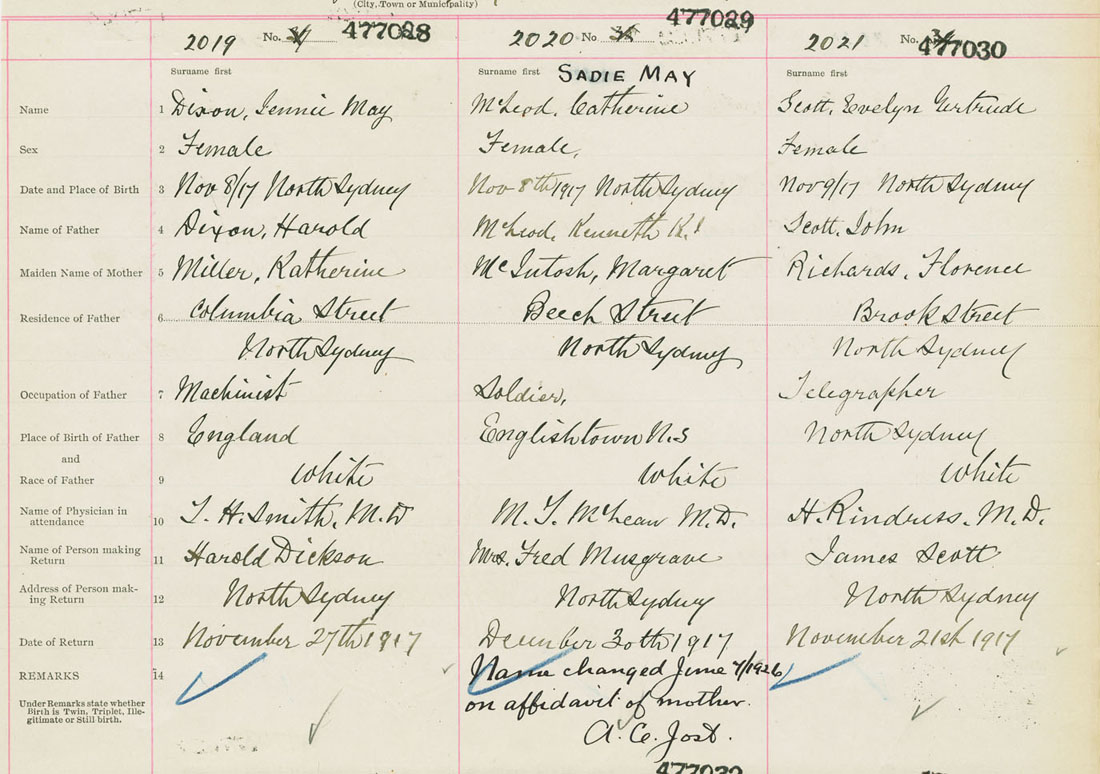 (City, Town or Municipality)
2019 No. 477028 2020 No 477029 2021 No. 477030
Surname first Surname first SADIE MAY Surname first
Name 1 Dixon, Jennie May McLeod, Catherine Scott, Evelyn Gertrude
Sex 2 Female Female, Female
Date and Place of Birth 3 Nov 8/17 North Sydney Nov 8th 1917 North Sydney Nov 9/17 North Sydney
Name of Father 4 Dixon, Harold McLeod, Kenneth Scott, John
Maiden Name of Mother 5 Miller, Katherine McIntosh, Margaret Richards, Florence
Residence of Father 6 Columbia Street Beech Street Brook Street
North Sydney North Sydney North Sydney
Occupation of Father 7 Machinist Soldier, Telegrapher
Place of Birth of Father 8 England Englishtown N.S North Sydney
and
Race of Father 9 White White White
Name of Physician in attendance 10 L. H. Smith, M.D M. T. McLean M.D. H. Rindress. M.D.
Name of Person making Return 11 Harold Dickson Mrs. Fred Musgrave James Scott
Address of Person mak-ing Return 12 North Sydney North Sydney North Sydney
Date of Return 13 November 27th 1917 December 30th 1917 November 21st 1917
REMARKS 14 Name changed June 7/1926
Under Remarks state whether Birth is Twin, Triplet, Ille-gitimate or Still birth. on affidavit of mother.
A. Ce. Jost.
477032